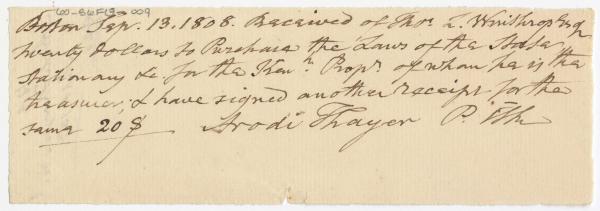 60-SLF12-009
Boston Sep. 13. 1808. Received of Thos. L. Winthrop Esqr
twenty dollars to Purchase the Laws of the State,
stationary &c. for the Kenn. Propr. of whom he is the
treasurer, & have signed another receipt for the
same 20 $ Arodi Thayer P.